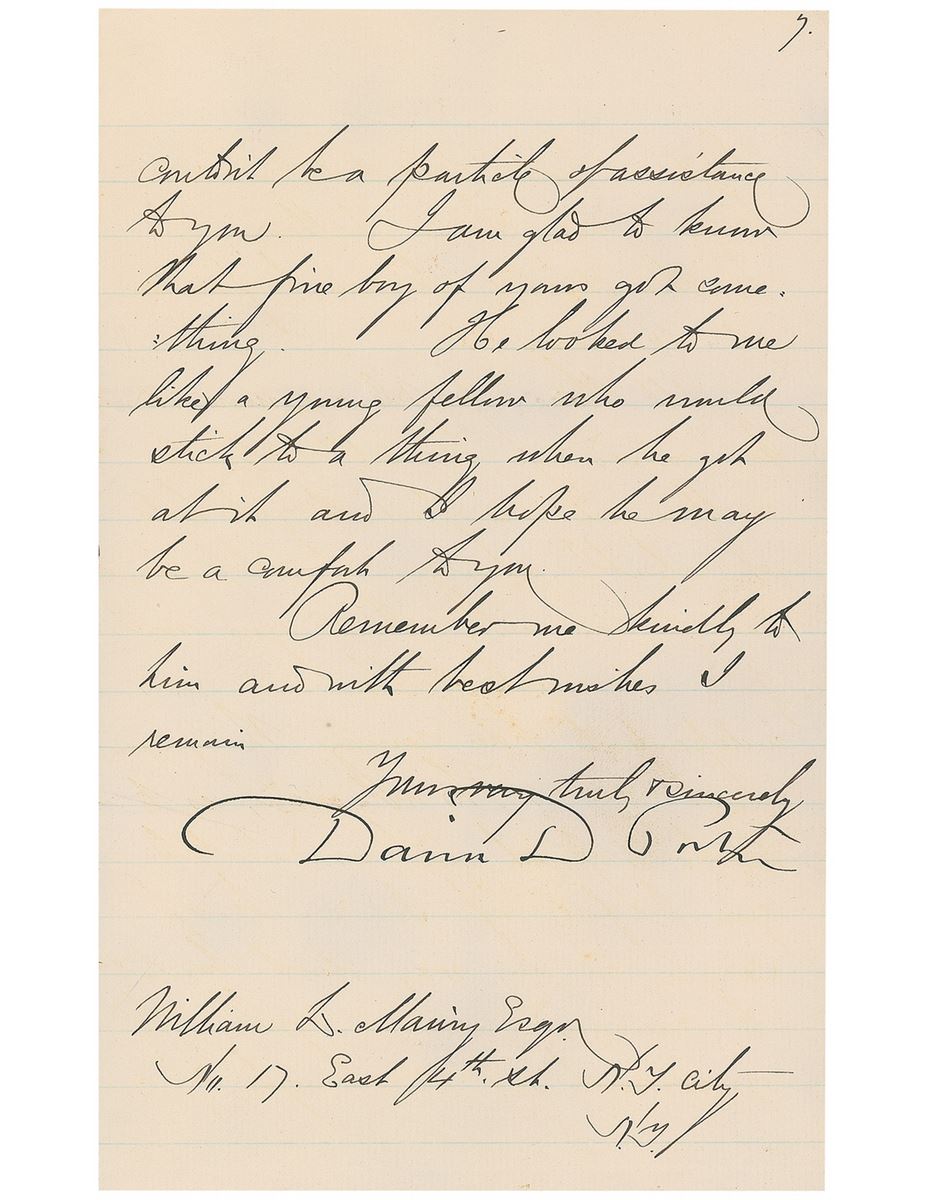 7.
couldn't be a particle of assistance
to you. I am glad to know
that fine boy of yours got some=
=thing. He looked to me
like a young fellow who would
stick to a thing when he got
at it and I hope he may
be a comfort to you.
Remember me kindly to
him and with best wishes I
remain
Yours very truly & sincerely
David D Porter
William L. Maury Esqr
No. 17. East 14th. St. N.Y. City
N.Y.